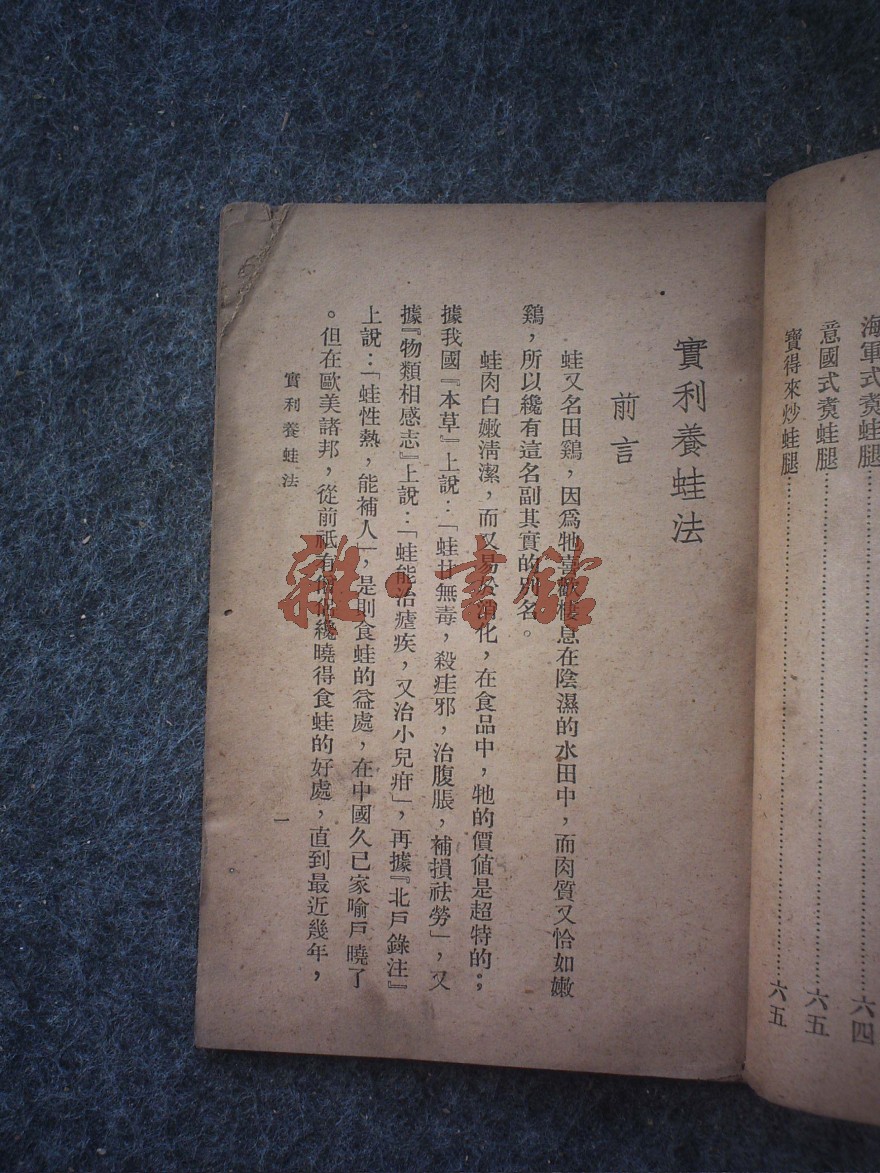 海軍式煑蛙腿……………………六四
意國式煑蛙腿……………………六五
寶得來炒蛙腿……………………六五
實利養蛙法
前言
蛙又名田鷄，因爲牠喜歡棲息在陰濕的水田中，而肉質又恰如嫩
鷄，所以纔有這名副其實的別名。
蛙肉白嫩清潔，而又易於消化，在食品中，牠的價値是超特的；
據我國『本草』上說：「蛙甘無毒，殺疰邪，治腹脹，補損祛勞」，又
據『物類相感志』上說：「蛙能治瘧疾，又治小兒疳」，再據『北戶錄注』
上說：「蛙性熱，能補人」，是則食蛙的益處，在中國久已家喻戶曉了
。但在歐美諸邦，從前祇有法國纔曉得食蛙的好處，直到最近幾年，
實利養蛙法
一
雜·書館